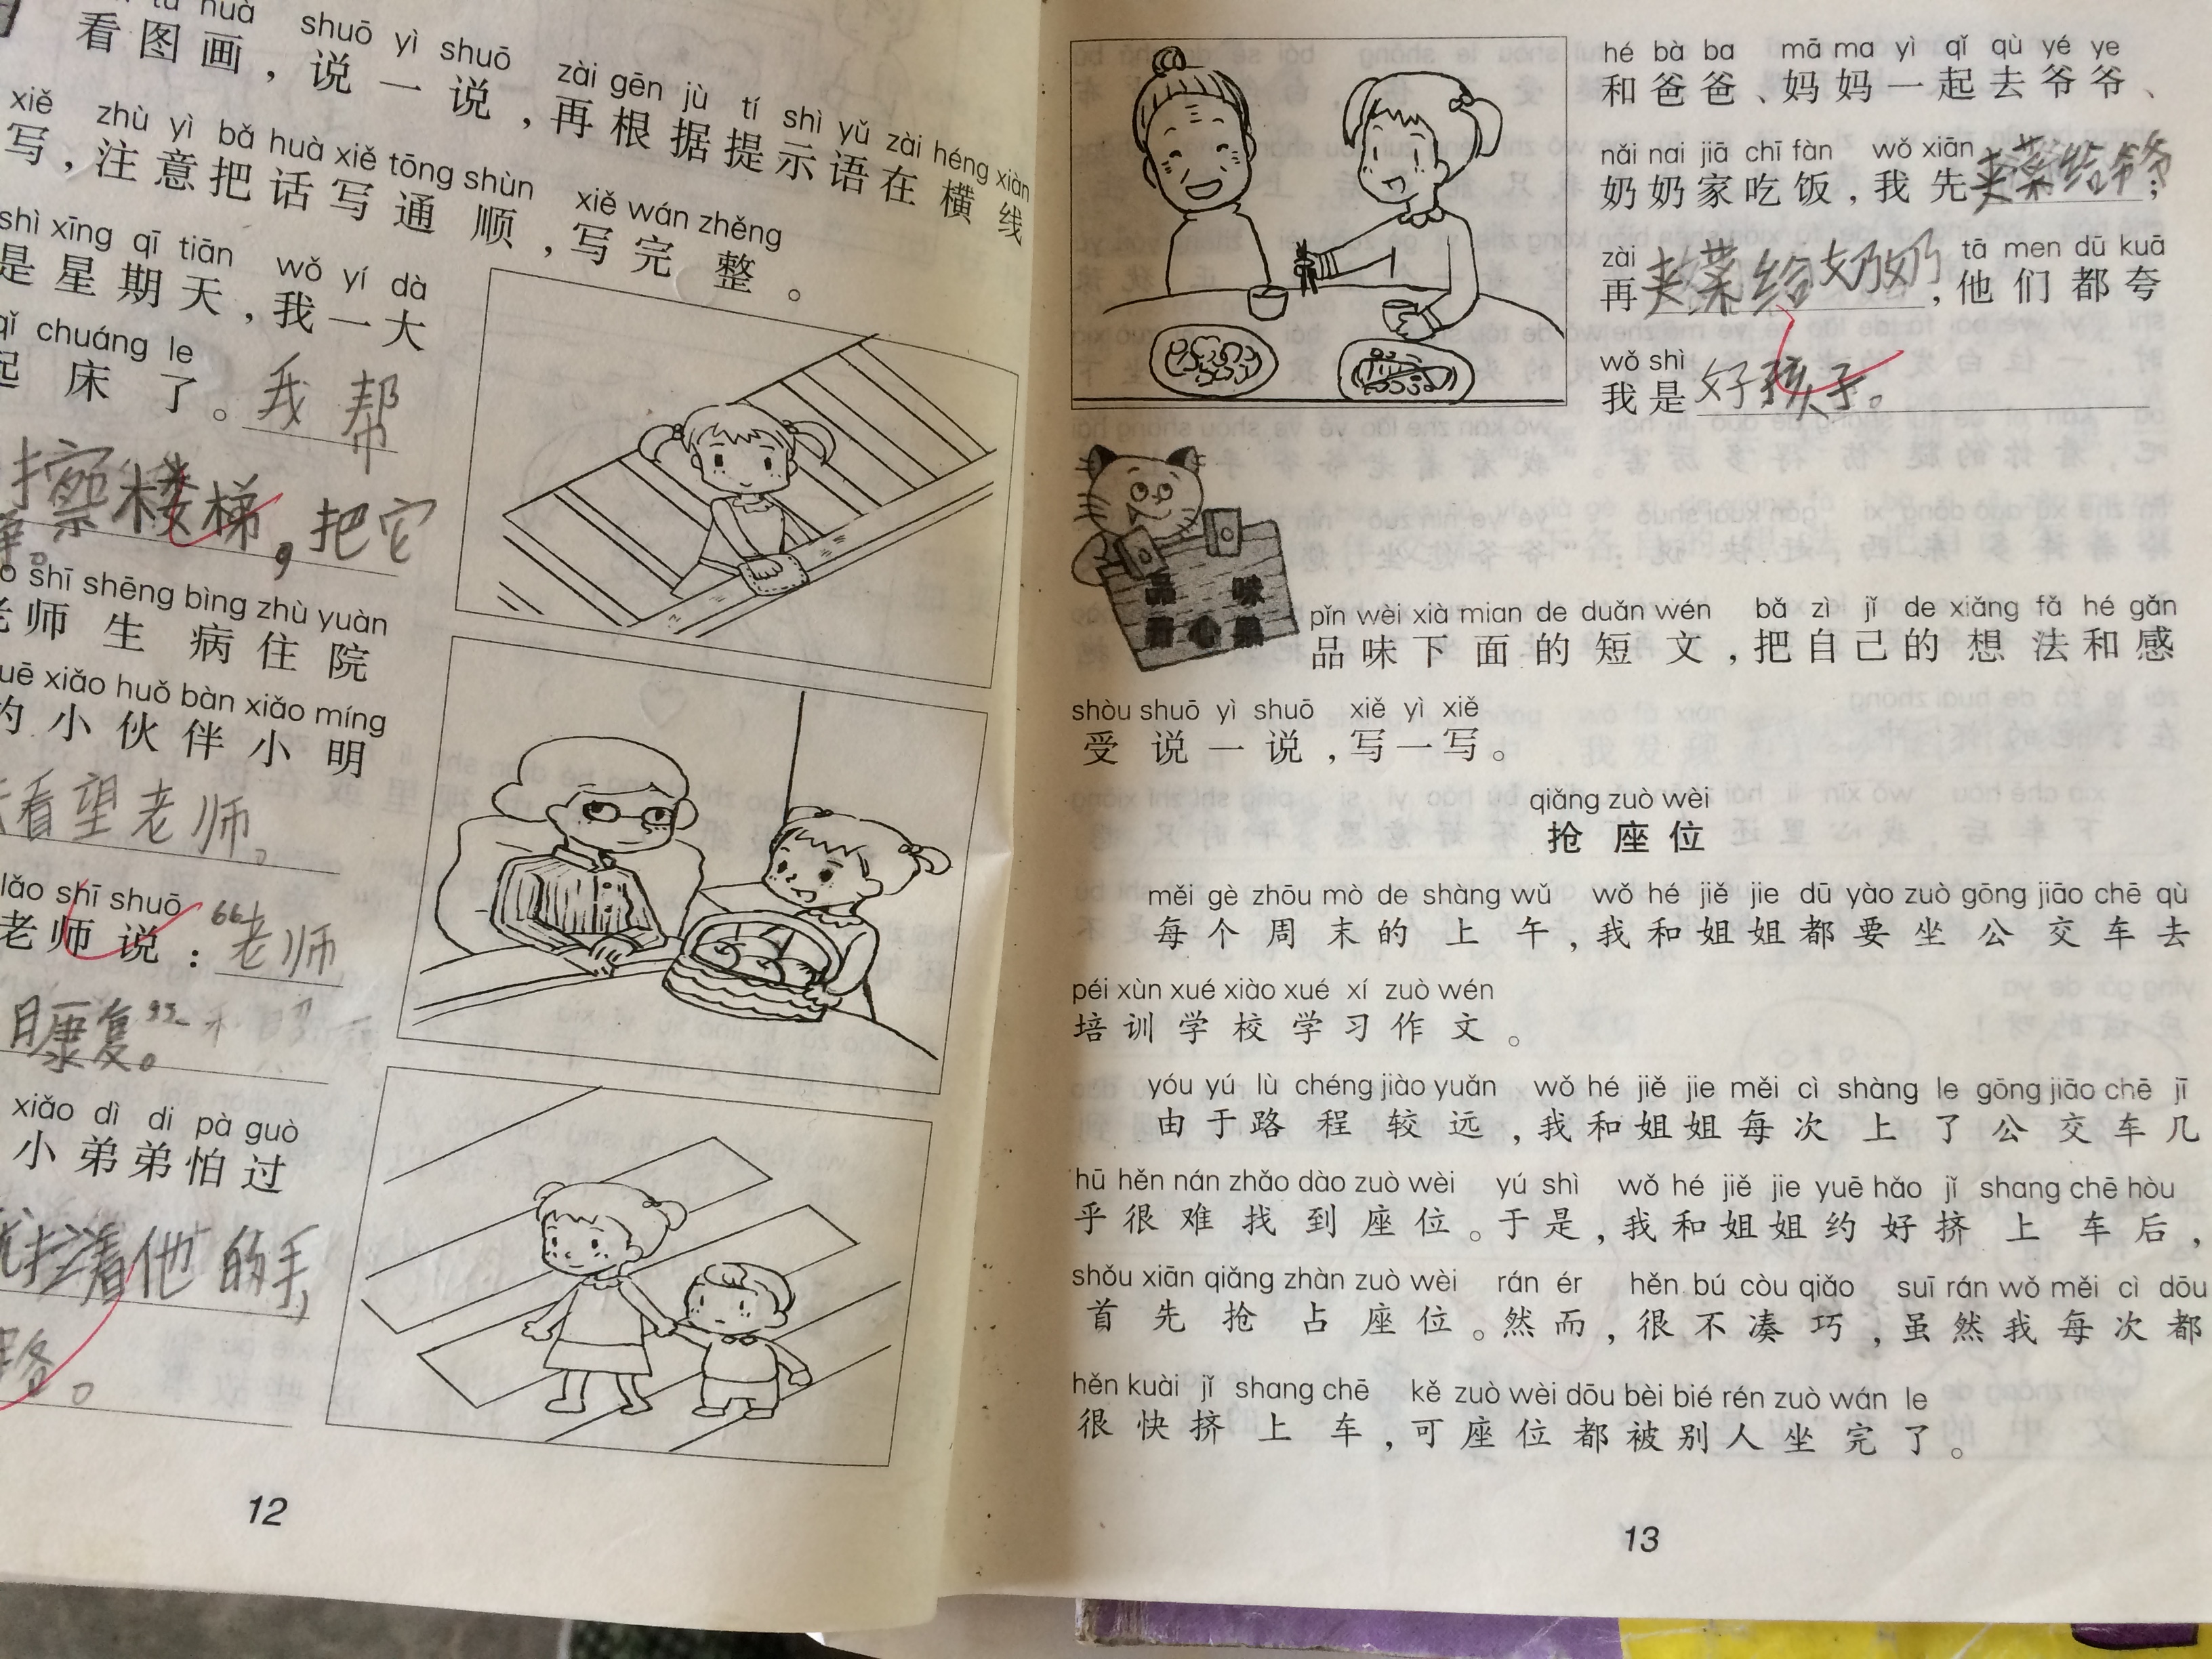 huà shuō yì shuō zài gēn jù tí shì yǔ zài héng xiàn
看图画，说一说，再根据提示语在横线
xiě zhù yì bǎ huà xiě tōng shùn xiě wán zhěng
写，注意把话写通顺，写完整。
shì xīng qī tiān wǒ yí dà
是星期天，我一大
qǐ chuáng le
起床了。我帮
擦楼梯，把它
shī shēng bìng zhù yuàn
老师生病住院
xiǎo huǒ bàn xiǎo míng
的小伙伴小明
看望老师。
lǎo shī shuō
老师说：“老师
日康复。”
xiǎo dì di pà guò
小弟弟怕过
拦着他的手，
路。
12
hé bà ba mā ma yì qǐ qù yé ye
和爸爸、妈妈一起去爷爷、
nǎi nai jiā chī fàn wǒ xiān
奶奶家吃饭，我先夹菜给爷爷；
zài tā men dū kuā
再夹菜给奶奶，他们都夸
wǒ shì
我是好孩子。
品味
pǐn wèi xià mian de duǎn wén bǎ zì jǐ de xiǎng fǎ hé gǎn
品味下面的短文，把自己的想法和感
shòu shuō yì shuō xiě yì xiě
受说一说，写一写。
qiǎng zuò wèi
抢座位
měi gè zhōu mò de shàng wǔ wǒ hé jiě jie dū yào zuò gōng jiāo chē qù
每个周末的上午，我和姐姐都要坐公交车去
péi xùn xué xiào xué xí zuò wén
培训学校学习作文。
yóu yú lù chéng jiào yuǎn wǒ hé jiě jie měi cì shàng le gōng jiāo chē jī
由于路程较远，我和姐姐每次上了公交车几
hū hěn nán zhǎo dào zuò wèi yú shì wǒ hé jiě jie yuē hǎo jǐ shang chē hòu
乎很难找到座位。于是，我和姐姐约好挤上车后，
shǒu xiān qiǎng zhàn zuò wèi rán ér hěn bú còu qiǎo suī rán wǒ měi cì dōu
首先抢占座位。然而，很不凑巧，虽然我每次都
hěn kuài jǐ shang chē kě zuò wèi dōu bèi bié rén zuò wán le
很快挤上车，可座位都被别人坐完了。
13